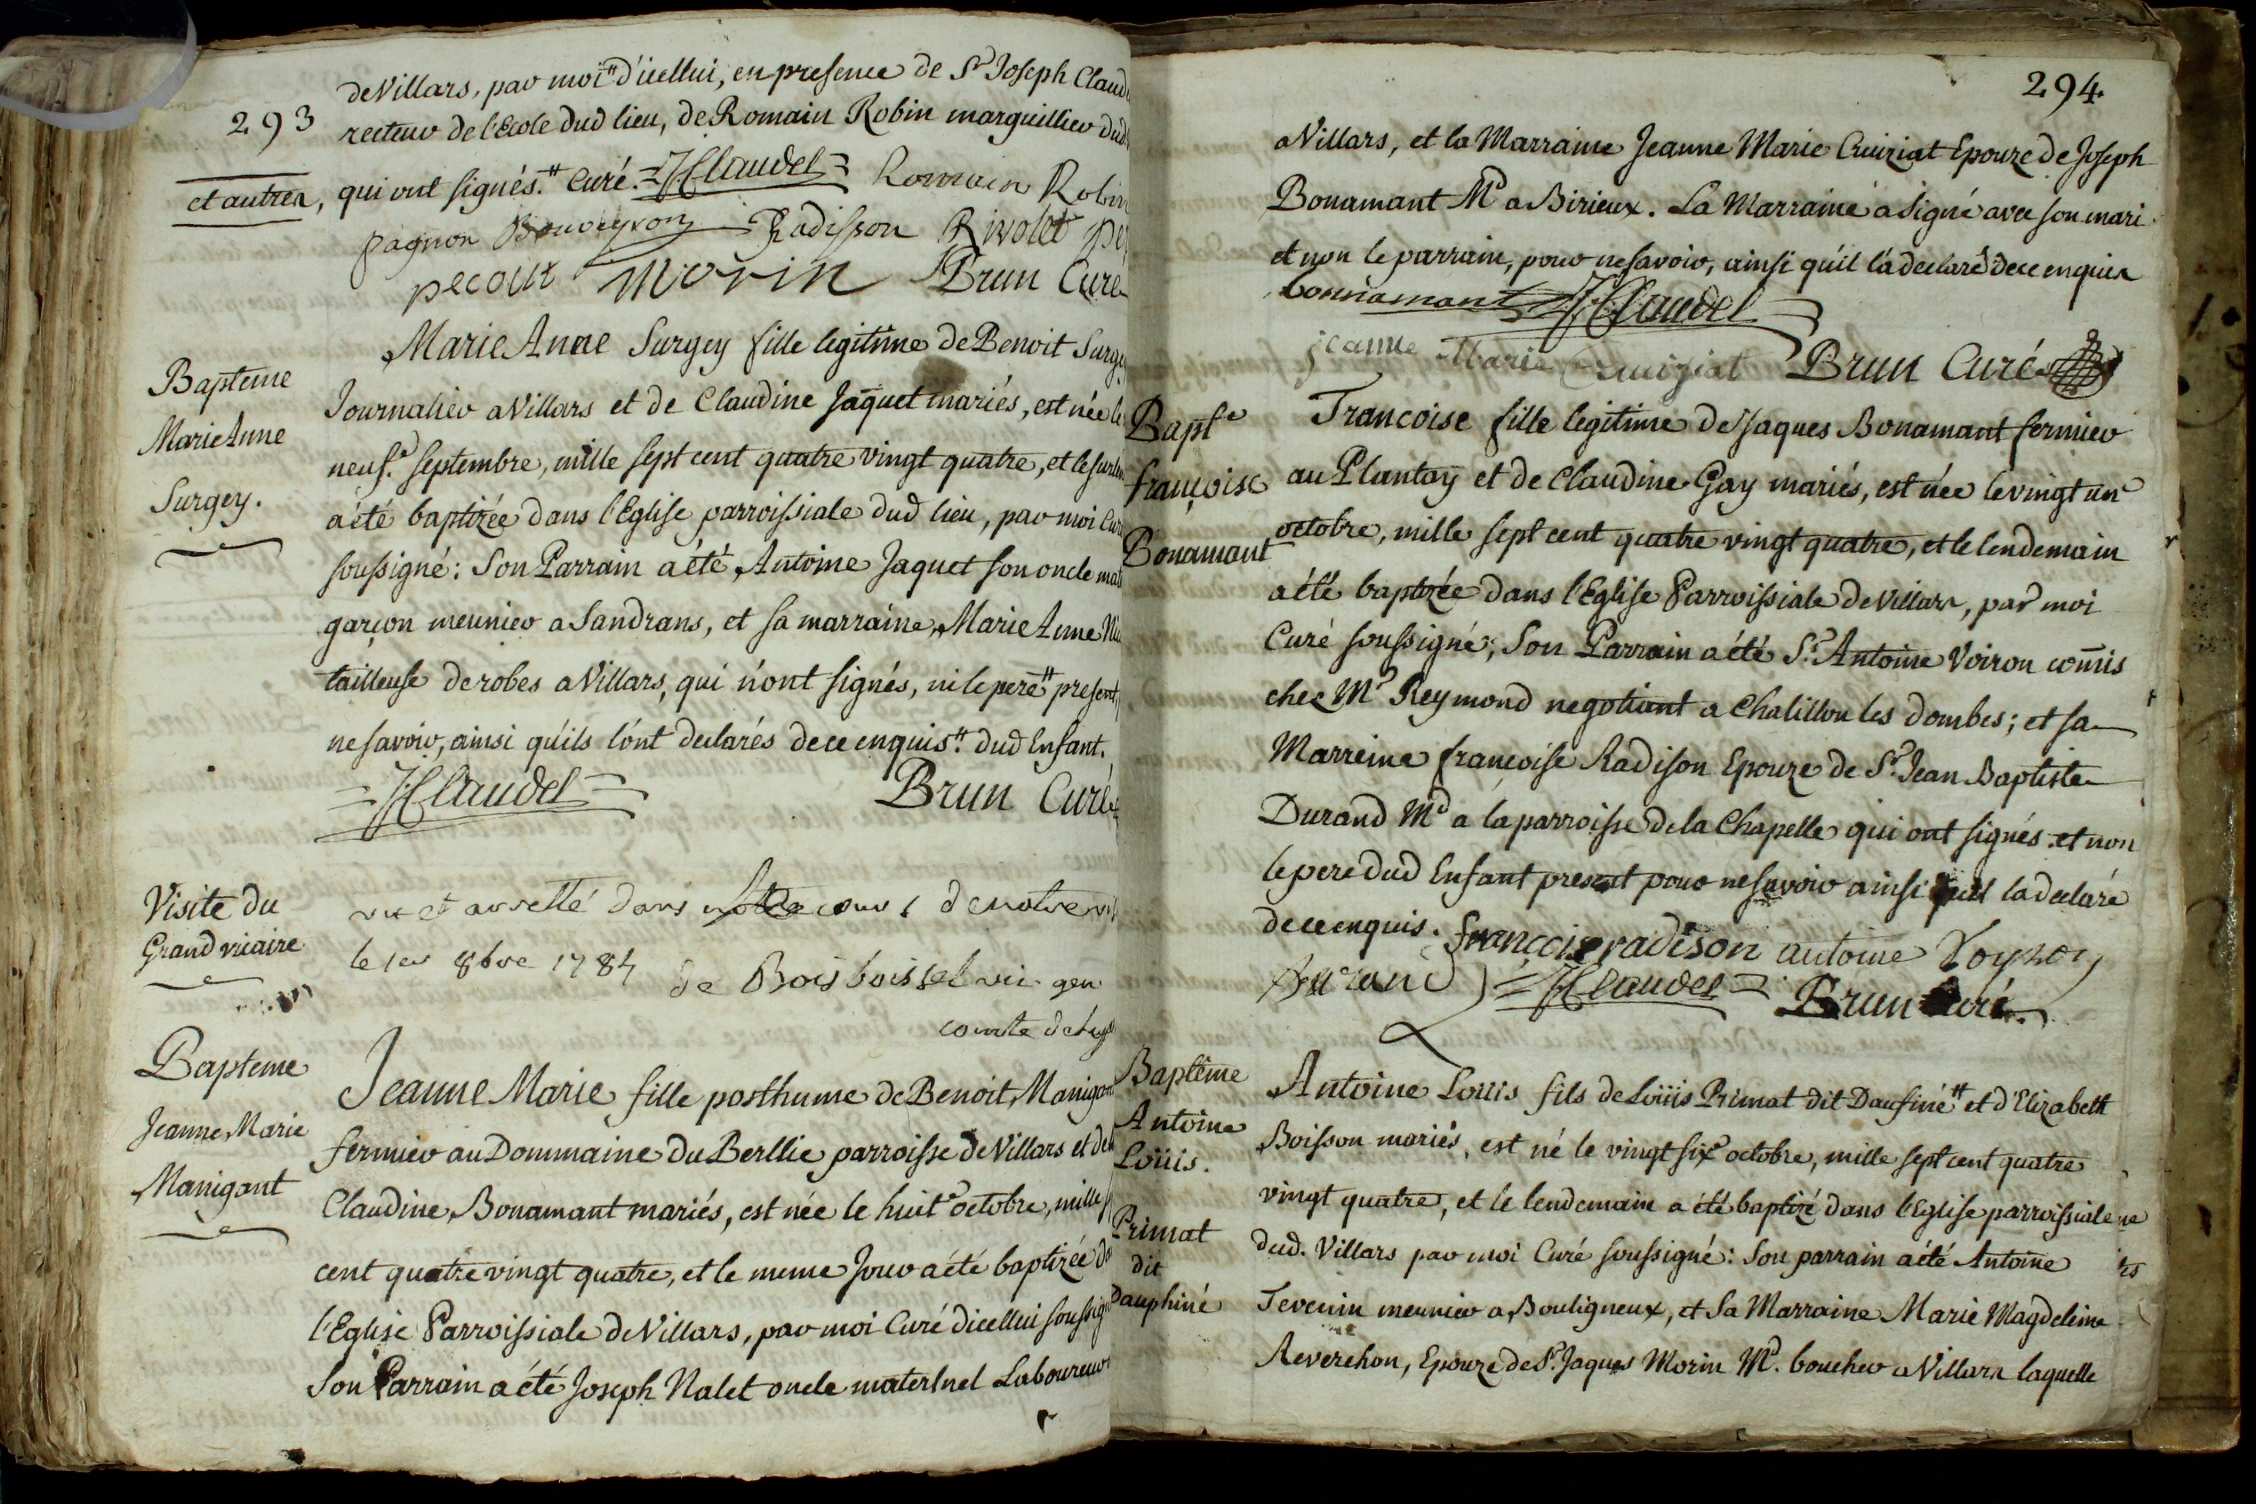 293
de Villars, par moi d'icellui, en presence de Sr Joseph Claud
recteur de l'Ecole dud lieu, de Romain Robin marguillier dud
et autres, qui ont signés. Curé. JClaudel Romain Robin
pagnon Bouveyron Radisson Rivolet
pecout Morin Brun Curé
Bapteme
Marie Anne
Surgey.
Marie Anne Surgey fille legitime de Benoit Surgey
Journalier a Villars et de Claudine Jaquet mariés, est née le
neuf.e septembre, mille sept cent quatre vingt quatre, et le surlen
a été baptizée dans l'Eglise parroissiale dud lieu, par moi Curé
soussigné: Son Parrain a été Antoine Jaquet son oncle mat
garçon meunier a Sandrans, et sa marraine, Marie Anne
tailleuse de robes a Villars, qui n'ont signés, ni le pere present,
ne savoir, ainsi qu'ils l'ont declarés de ce enquis. dud Enfant.
JClaudel Brun Curé
Visite du
Grand vicaire
vu et arretté dans cours de notre vis
le 1er 8bre 1784 de Boisboissel vic. gen
comte de Lyon
Bapteme
Jeanne Marie
Manigant
Jeanne Marie fille posthume de Benoit Manigant
fermier au Dommaine du Berllie parroisse de Villars et de
Claudine Bonamant mariés, est née le huit.e octobre, mille
cent quatre vingt quatre, et le meme Jour a été baptizée da
l'Eglise Parroissiale de Villars, par moi Curé d'icellui soussigné
Son Parrain a été Joseph Nalet oncle maternel Laboureur
294.
a Villars, et la Marraine Jeanne Marie Cruiziat Epouze de Joseph
Bonamant Md a Birieux. La Marraine a signé avec son mari
et non le parrain, pour ne savoir, ainsi qu'il l'a declaré de ce enquis
bonnamant JClaudel
jeanne Marie Cruiziat Brun Curé
Bapt.e
françoise
Bonamant
Francoise fille legitime de Jaques Bonamant fermier
au Plantay et de Claudine Gay mariés, est née le vingt un.e
octobre, mille sept cent quatre vingt quatre, et le lendemain
a été baptizée dans l'Eglise Parroissiale de Villars, par moi
Curé soussigné; Son Parrain a été Sr. Antoine Voiron com̄is
chez Mr Reymond negotiant a Chatillon les dombes; et sa
Marreine françoise Radison Epouze de Sr. Jean Baptiste
Durand Md a la parroisse de la Chapelle qui ont signés et non
le pere dud Enfant present pour ne savoir ainsi quil la declaré
de ce enquis. françoise radison antoine Voyron
durand JClaudel Brun Curé.
Baptême
Antoine
Loüis.
Primat
dit
Dauphiné
Antoine Loüis fils de Loüis Primat dit Daufiné et d'Elizabeth
Boisson mariés, est né le vingt six.e octobre, mille sept cent quatre
vingt quatre, et le lendemain a été baptizé dans l'Eglise parroissiale
dud. Villars par moi Curé soussigné: Son parrain a été Antoine
Tevenin meunier a Bouligneux, et Sa Marraine Marie Magdeleine
Reverchon, Epouze de Sr. Jaques Morin Md. boucher a Villars laquelle